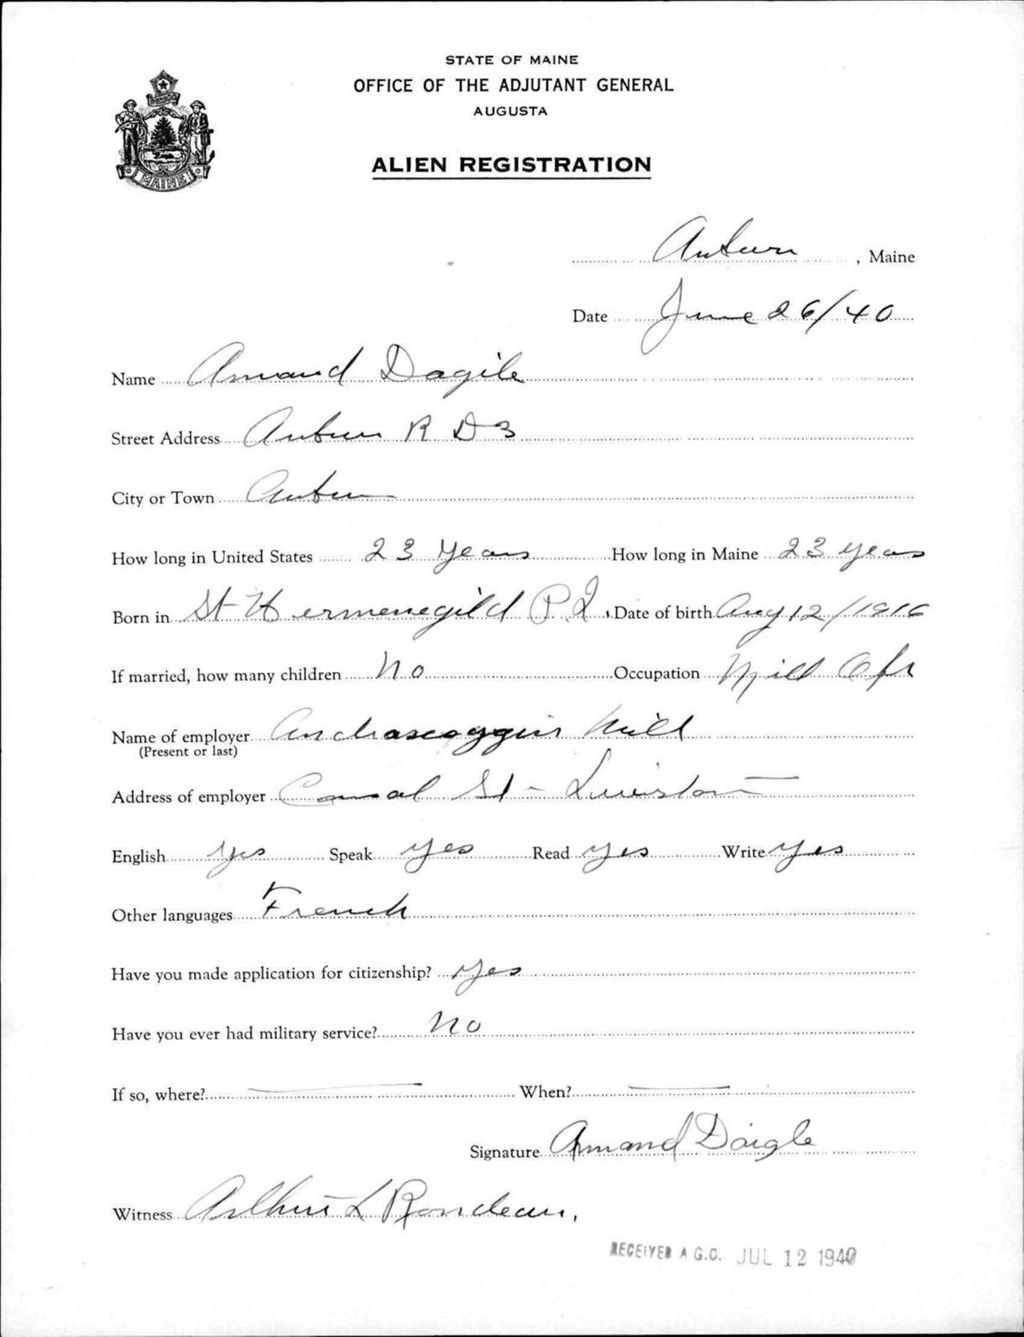 STATE OF MAINE
OFFICE OF THE ADJUTANT GENERAL
AUGUSTA
MAINE
ALIEN REGISTRATION
Auburn, Maine
Date June 26/40
Name Armand Dagile
Street Address Auburn R D 3
City or Town Auburn
How long in United States 23 Years How long in Maine 23 years
Born in St Hermenegild P. Q. Date of birth Aug 12/1916
If married, how many children No Occupation Mill Opr
Name of employer Androscoggin Mill
(Present or last)
Address of employer Canal St - Lewiston
English Yes Speak Yes Read Yes Write Yes
Other languages French
Have you made application for citizenship? Yes
Have you ever had military service? No
If so, where? When?
Signature Armand Daigle
Witness Arthur L Rondeau,
RECEIVED A.G.O. JUL 12 1940